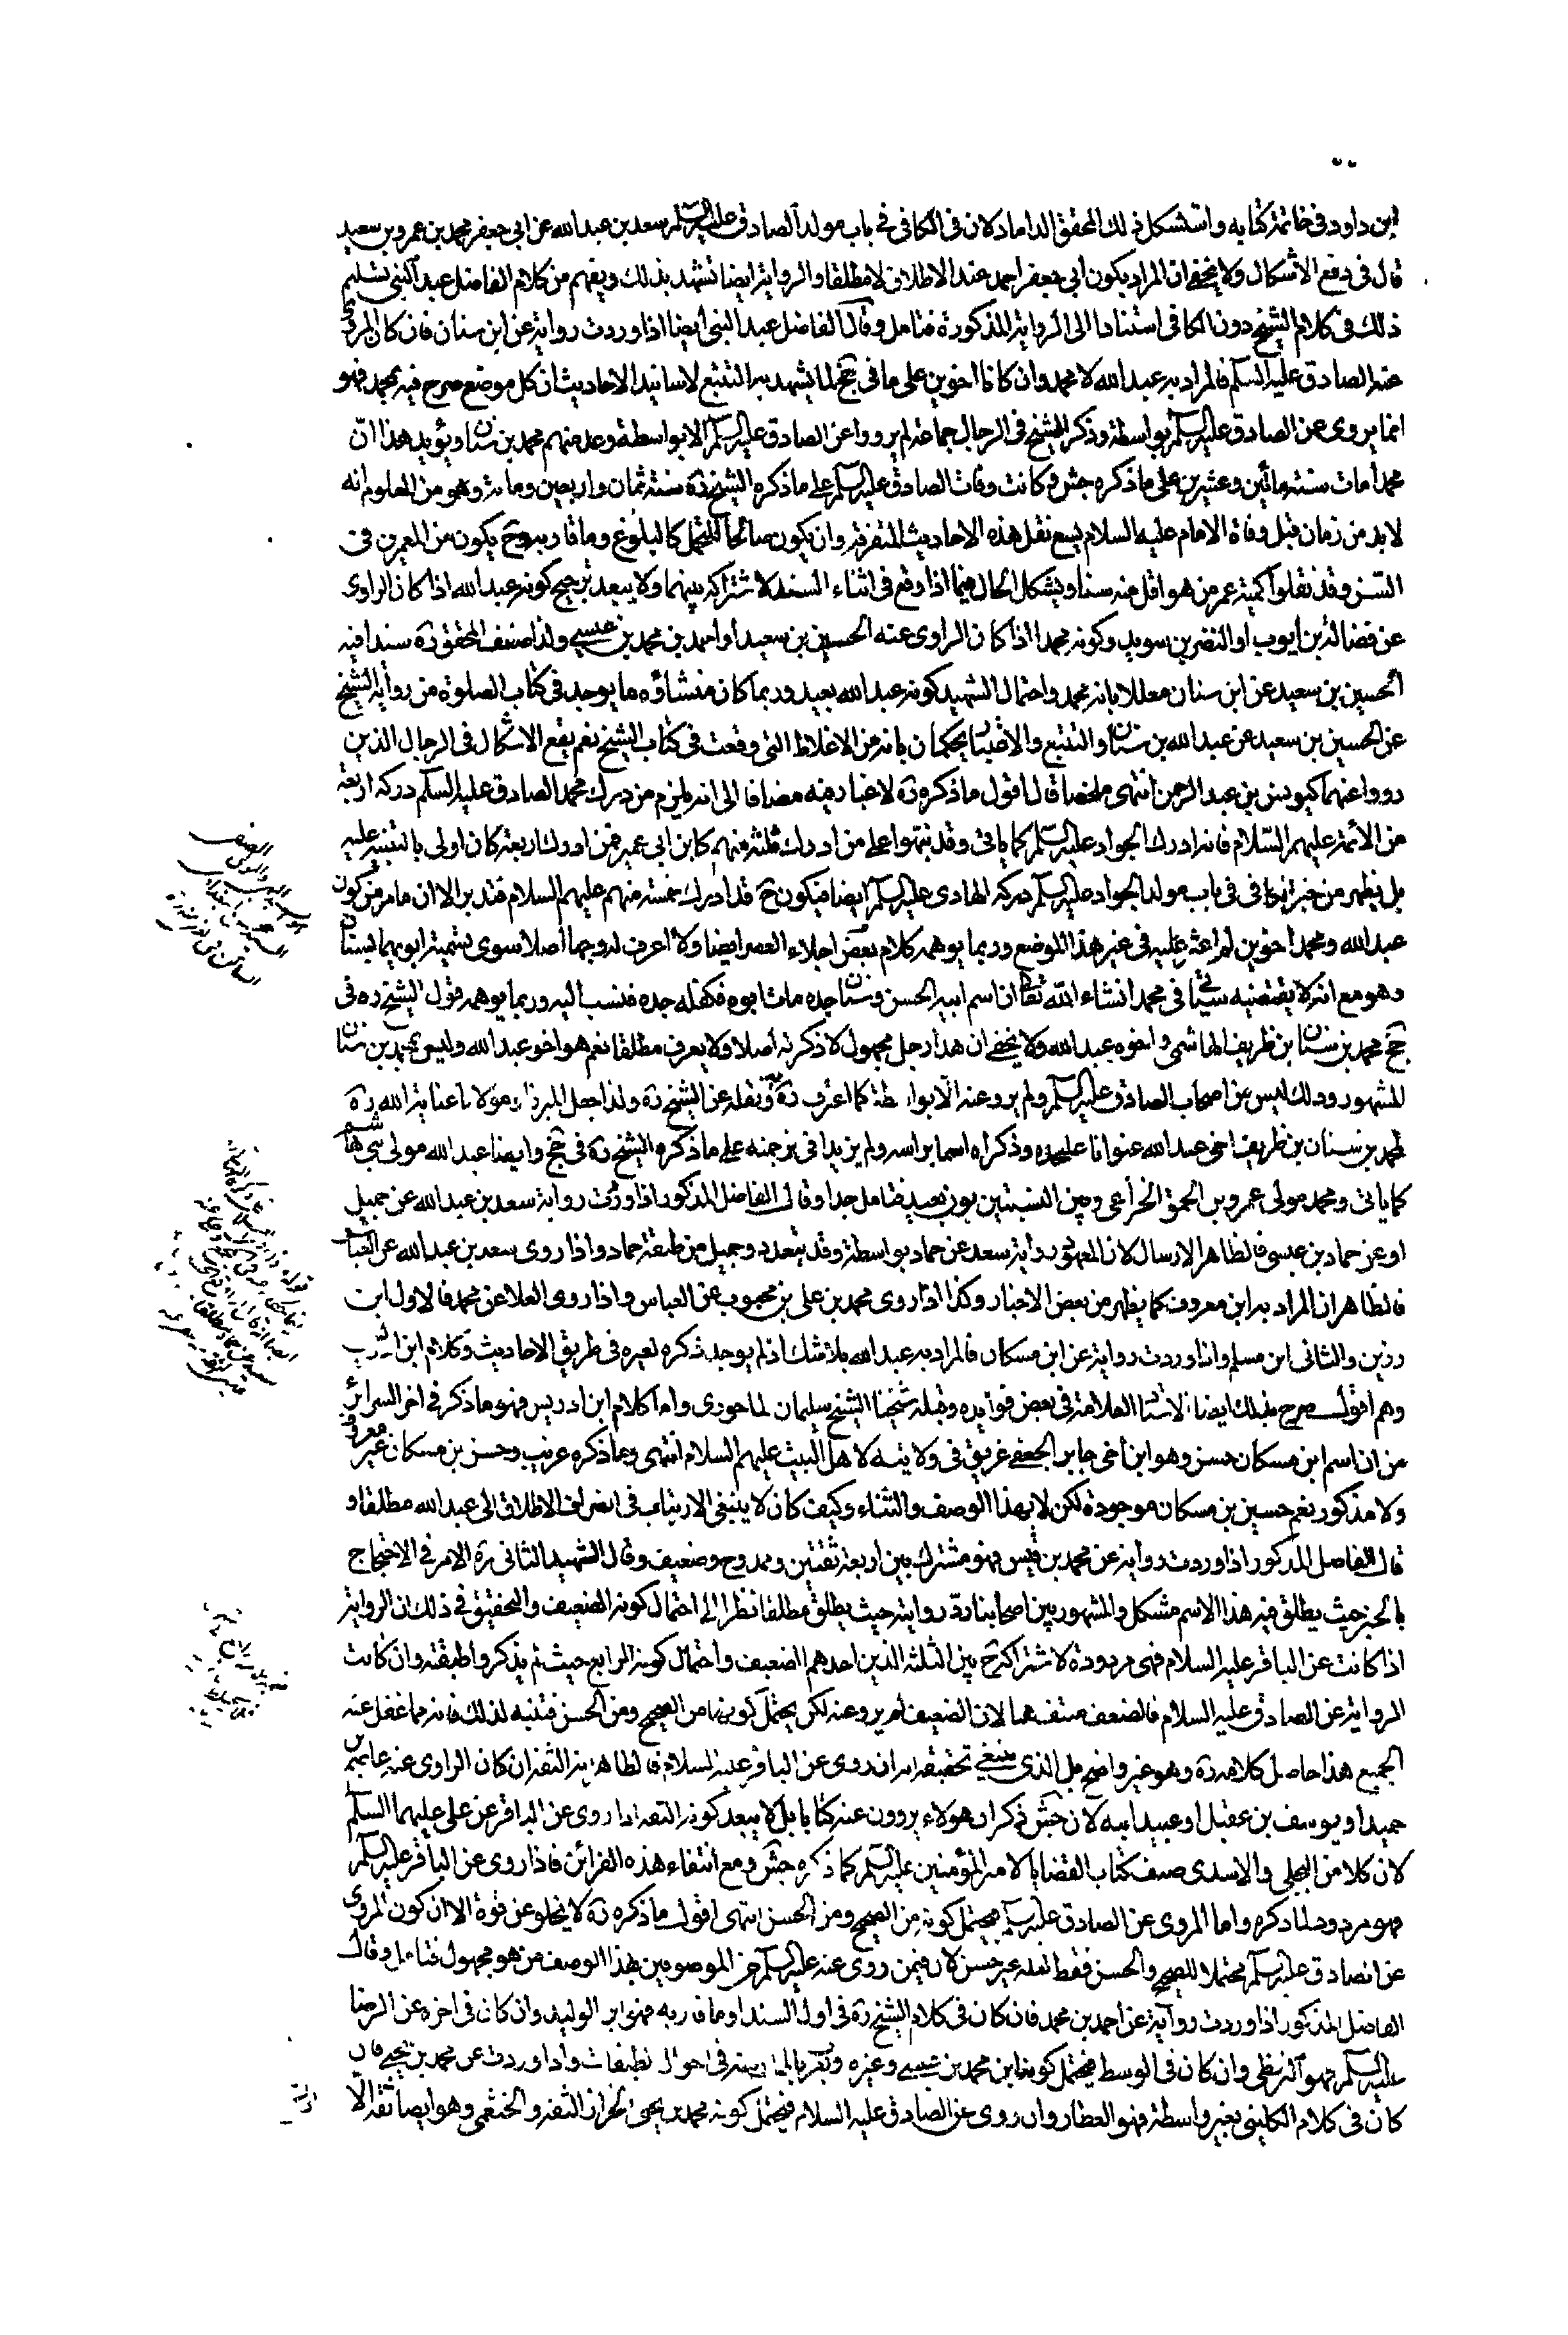 ابن داود في خاتمة كتابه واستشكل ذلك المحقق الداماد لان في الكافي في باب مولد الصادق عليه السلم سعد بن عبد الله عن ابي جعفر محمد بن عمرو بن سعيد
قال في دفع الاشكال ولا يخفى ان المراد يكون ابي جعفر احمد عند الاطلاق لا مطلقا والرواية ايضا تشهد بذلك ويفهم من كلام الفاضل عبد النبي تسليم
ذلك في كلام الشيخ دون الكافي استنادا الى الرواية المذكورة فتامل وقال الفاضل عبد النبي ايضا اذا وردت رواية عن ابن سنان فان كان المروي
عنه الصادق عليه السلم فالمراد به عبد الله لا محمد وان كانا اخوين على ما في جخ لما يشهد به التتبع لاسانيد الاحاديث ان كل موضع صرح فيه بمحمد فهو
انما يروى عن الصادق عليه السلم بواسطة وذكر الشيخ في الرجال جماعة لم يرووا عن الصادق عليه السلم الا بواسطة وعد منهم محمد بن سنان ويؤيد هذا ان
محمدا مات سنة مأتين وعشرين على ما ذكره جش وكانت وفات الصادق عليه السلم على ما ذكره الشيخ ره سنة ثمان واربعين ومائة وهو من المعلوم انه
لا بد من زمان قبل وفاة الامام عليه السلام يسع نقل هذه الاحاديث المتفرقة وان يكون صالحا للتحمل كالبلوغ وما قاربه وح يكون من المعمرين في
السن وقد نقلوا كمية عمر من هو اقل منه سنا ويشكل الحال فيما اذا وقع في اثناء السند لاشتراكه بينهما ولا يبعد ترجيح كونه عبد الله اذا كان الراوى
عن فضالة بن ايوب او النضر بن سويد وكونه محمدا اذا كان الراوى عنه الحسين بن سعيد او احمد بن محمد بن عيسى ولذا ضعف المحقق ره سندا فيه
الحسين بن سعيد عن ابن سنان معللا بانه محمد واحتمال الشهيد كونه عبد الله بعيد وربما كان منشاؤه ما يوجد في كتاب الصلوة من رواية الشيخ
عن الحسين بن سعيد عن عبد الله بن سنان والتتبع والاعتبار يحكمان بانه من الاغلاط التي وقعت في كتاب الشيخ نعم يقع الاشكال في الرجال الذين
رووا عنهما كيونس بن عبد الرحمن انتهى ملخصا قال اقول ما ذكره ره لا غبار فيه مضافا الى انه يلزم من درك محمد الصادق عليه السلم دركه اربعة
من الائمة عليهم السلام فانه ادرك الجواد عليه السلم كما ياتي وقد نبهوا على من ادرك ثلثة منهم كابن ابي عمير فمن ادرك اربعة كان اولى بالتنبيه عليه
بل يظهر من خبر في الكافي في باب مولد الجواد عليه السلم دركه الهادي عليه السلم ايضا فيكون ح قد ادرك خمسة منهم عليهم السلام فتدبر الا ان ما مر من كون
عبد الله ومحمد اخوين لم اعثر عليه في غير هذا الموضع وربما يوهمه كلام بعض اجلاء العصر ايضا ولا اعرف له وجها اصلا سوى تسمية ابويهما بسنان
وهو مع انه لا يقتضيه سياتي في محمد انشاء الله تعا ان اسم ابيه الحسن وسنان جده مات ابوه فكفله جده فنسب اليه وربما يوهمه قول الشيخ ره في
جخ محمد بن سنان بن ظريف الهاشمي واخوه عبد الله ولا يخفى ان هذا رجل مجهول لا ذكر له اصلا ولا يعرف مطلقا نعم هو اخو عبد الله وليس بمحمد بن سنان
المشهور وذلك ليس من اصحاب الصادق عليه السلم ولم يرو عنه الا بواسطة كما اعترف ره به ونقله عن الشيخ ره ولذا جعل مولانا عناية الله ره
لمحمد بن سنان بن ظريف اخي عبد الله عنوانا عليحده وذكراه اسما براسه ولم يزيدا في ترجمته على ما ذكره الشيخ ره في جخ وايضا عبد الله مولى بني هاشم
كما ياتي ومحمد مولى عمرو بن الحمق الخزاعي وبين النسبتين بون بعيد فتامل جدا وقال الفاضل المذكور اذا وردت رواية سعد بن عبد الله عن جميل
او عن حماد بن عيسى فالظاهر الارسال لان المعهود رواية سعد عن حماد بواسطة وقد يتعدد وجميل من طبقة حماد واذا روى سعد بن عبد الله عن العباس
فالظاهر ان المراد به ابن معروف كما يظهر من بعض الاخبار وكذا اذا روى محمد بن على بن محبوب عن العباس واذا روى العلا عن محمد فالاول ابن
رزين والثاني ابن مسلم واذا وردت رواية عن ابن مسكان فالمراد به عبد الله بلا شك اذ لم يوجد ذكره لغيره في طريق الاحاديث وكلام ابن ادريس
وهم اقول صرح بذلك ايضا الاستاد العلامة في بعض فوايده وقبله شيخنا الشيخ سليمان الماحوزى واما كلام ابن ادريس فهو ما ذكر في اخر السرائر
من ان اسم ابن مسكان حسن وهو ابن اخي جابر الجعفي غريق في ولايته لاهل البيت عليهم السلام انتهى وما ذكره غريب وحسن بن مسكان غير معروف
ولا مذكور نعم حسين بن مسكان موجود لكن لا بهذا الوصف والثناء وكيف كان لا ينبغي الارتياب في انصراف الاطلاق الى عبد الله مطلقا و
قال الفاضل المذكور اذا وردت رواية عن محمد بن قيس فهو مشترك بين اربعة ثقتين وممدوح وضعيف وقال الشهيد الثاني ره الامر في الاحتجاج
بالخبر حيث يطلق فيه هذا الاسم مشكل والمشهور بين اصحابنا رد روايته حيث يطلق مطلقا نظرا الى احتمال كونه الضعيف والتحقيق في ذلك ان الرواية
اذا كانت عن الباقر عليه السلام فهى مردودة لاشتراكه ح بين الثلثة الذين احدهم الضعيف واحتمال كونه الرابع حيث لم يذكروا طبقته وان كانت
الرواية عن الصادق عليه السلام فالضعف منتف هنا لان الضعيف لم يرو عنه لكن يحتمل كونها من الصحيح ومن الحسن فتنبه لذلك فانه مما غفل عنه
الجميع هذا حاصل كلامه ره وهو غير واضح بل الذى ينبغي تحقيقه انه ان روى عن الباقر عليه السلام فالظاهر انه الثقة ان كان الراوى عنه عاصم بن
حميد او يوسف بن عقيل او عبيد ابنه لان جش ذكر ان هولاء يروون عنه كتابا بل لا يبعد كونه الثقة اذا روى عن الباقر عن على عليهما السلم
لان كلا من البجلي والاسدى صنف كتاب القضايا لامير المؤمنين عليه السلم كما ذكره جش ومع انتفاء هذه القرائن فاذا روى عن الباقر عليه السلم
فهو مردود لما ذكره واما المروى عن الصادق عليه السلم فيحتمل كونه من الصحيح ومن الحسن انتهى اقول ما ذكره ره لا يخلو عن قوة الا ان كون المروى
عن الصادق عليه السلم محتملا للصحيح والحسن فقط لعله غير حسن لان فيمن روى عنه عليه السلم من الموصوفين بهذا الوصف من هو مجهول فتامل وقال
الفاضل المذكور اذا وردت رواية عن احمد بن محمد فان كان في كلام الشيخ ره في اول السند او ما قاربه فهو ابن الوليد وان كان في اخره عن الرضا
عليه السلم فهو البزنطي وان كان في الوسط فيحتمل كونه ابن محمد بن عيسى وغيره ويعرف بالممارسة في احوال الطبقات واذا وردت عن محمد بن يحيى فان
كان في كلام الكليني بغير واسطة فهو العطار وان روى عن الصادق عليه السلام فيحتمل كونه محمد بن يحيى الخزاز الثقة والخثعمي وهو ايضا ثقة الا